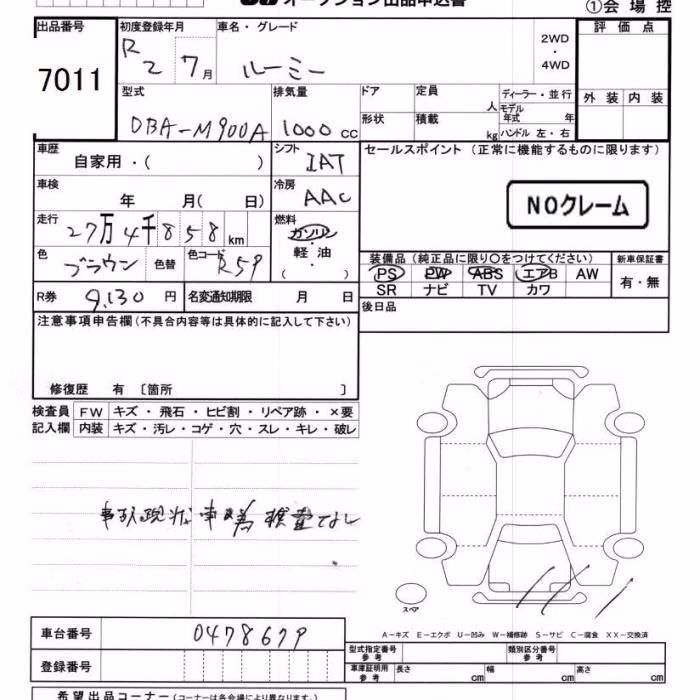 オークション出品申込書
①会場控
出品番号
7011
初度登録年月
R2 7月
車名・グレード
ルーミー
2WD
・
4WD
評価点
外装 内装
型式
DBA-M900A
排気量
1000cc
ドア
形状
定員
人
積載
kg
ディーラー・並行
モデル年式 年
ハンドル 左・右
車歴
自家用・( )
シフト
IAT
セールスポイント (正常に機能するものに限ります)
NOクレーム
車検
年 月( 日)
冷房
AAC
走行
27万4千858km
燃料
ガソリン
軽油
( ・ )
色
ブラウン
色替
色コード
R59
装備品 (純正品に限り○をつけてください)
PS PW ABS エアB AW
SR ナビ TV カワ
新車保証書
有・無
R券 9,130円
名変通知期限 月 日
後日品
注意事項申告欄 (不具合内容等は具体的に記入して下さい)
修復歴 有 〔箇所 〕
検査員記入欄
FW キズ・飛石・ヒビ割・リペア跡・×要
内装 キズ・汚レ・コゲ・穴・スレ・キレ・破レ
事故現状車の為検査なし
スペア
A−キズ E−エクボ U−凹み W−補修跡 S−サビ C−腐食 XX−交換済
車台番号
0478679
登録番号
型式指定番号 参考
類別区分番号 参考
車庫証明用 参考 長さ cm 幅 cm 高さ cm
希望出品コーナー (コーナーは各会場により異なります。)